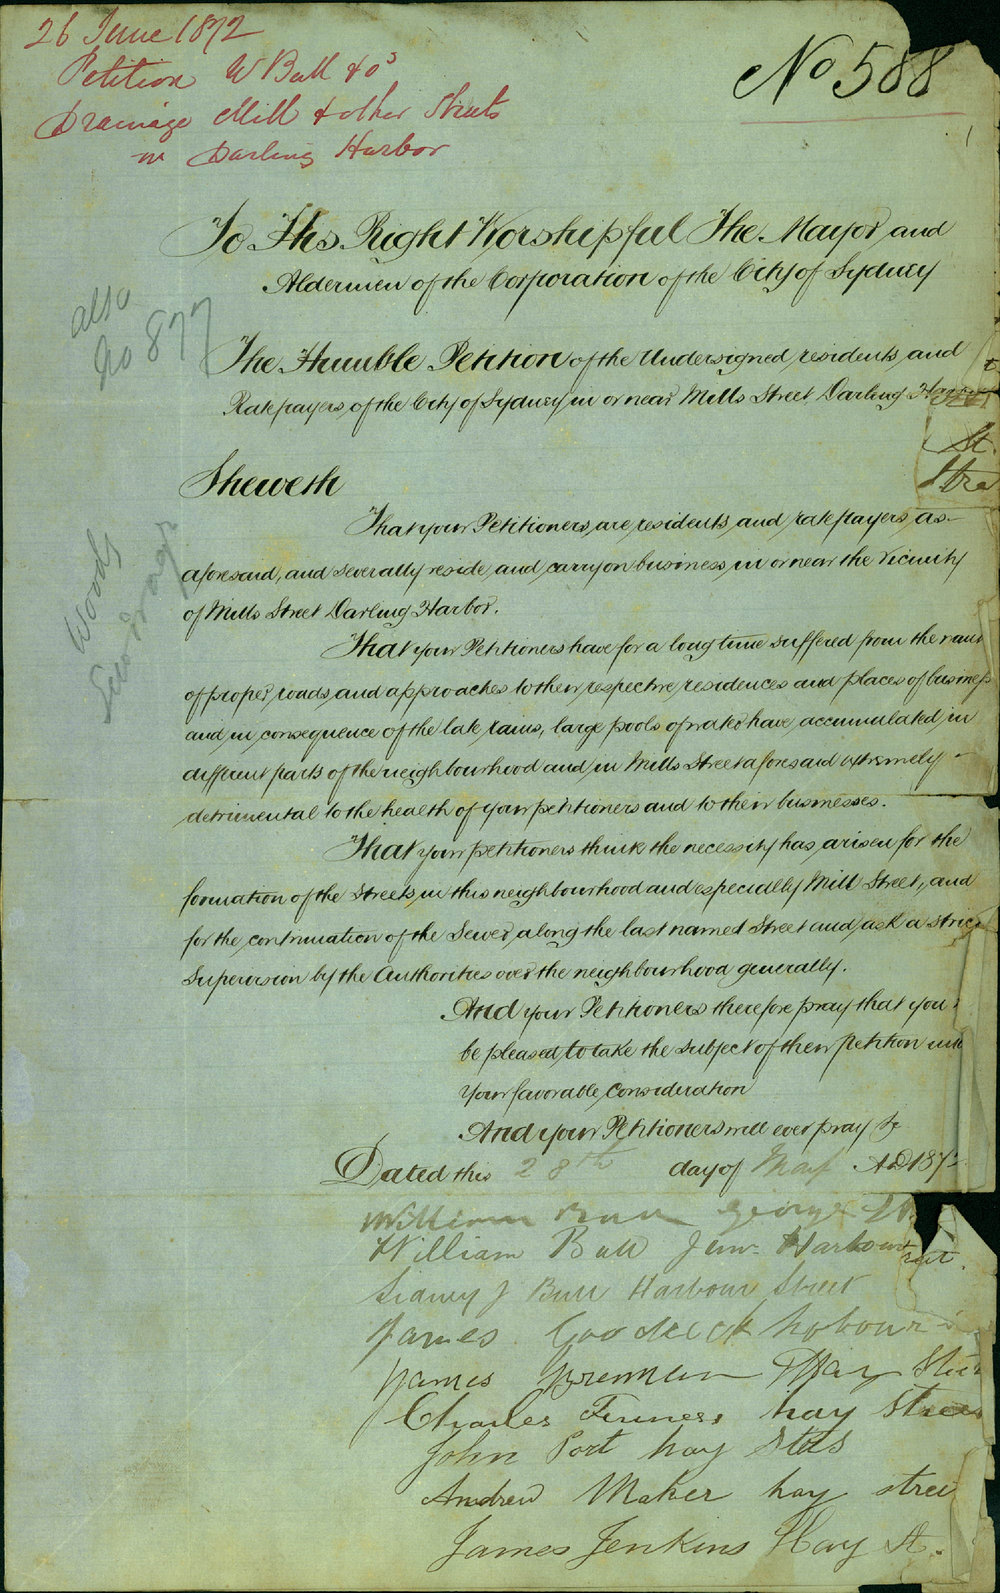 26 June 1872
Petition W Bull & os
Drainage Mill & other Streets
in Darling Harbor
No 588
To His Right Worshipful The Mayor and
Aldermen of the Corporation of the City of Sydney
also
No 877
The Humble Petition of the Undersigned residents and
Ratepayers of the City of Sydney in or near Mills Street Darling
St.
Stre
Sheweth
That your Petitioners are residents and ratepayers as
aforesaid, and severally reside and carry on business in or near the Vicinity
of Mills Street Darling Harbor.
Woods
That your Petitioners have for a long time suffered from the want
of proper roads and approaches to their respective residences and places of business
and in consequence of the late rains, large pools of water have accumulated in
different parts of the neighbourhood and in Mills Street aforesaid extremely
detrimental to the health of your petitioners and to their businesses.
That your petitioners think the necessity has arisen for the
formation of the Streets in this neighbourhood and especially Mill Street, and
for the continuation of the Sewer along the last named Street and ask a stric
Supervision by the Authorities over the neighbourhood generally.
And your Petitioners therefore pray that you
be pleased to take the subject of their petition into
Your favorable consideration
And your Petitioners will ever pray &c
Dated this 28th day of May AD 187
William Bull George St
William Bull Junr Harbour
Sidney J Bull Harbour Street
James hobour
James Hay Stree
Charles hay Street
John Port hay Sts
Andrew Maher hay stree
James Jenkins Hay St.